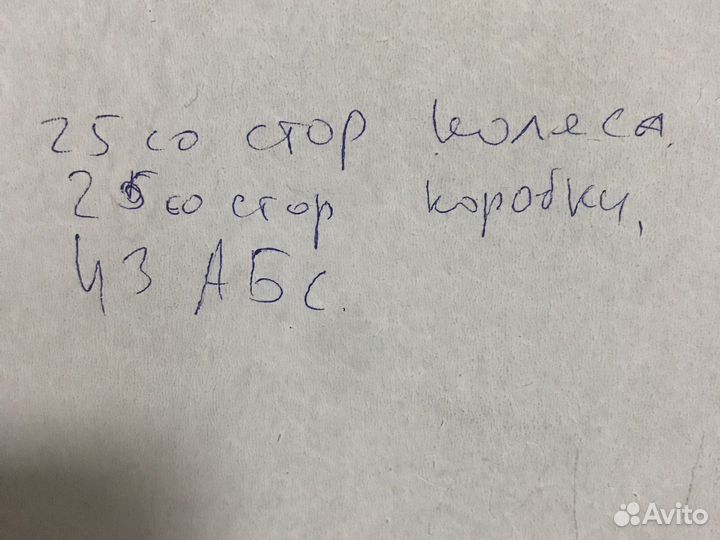 25 со стор колеса.
25 со стор коробки,
43 АБС.
Avito